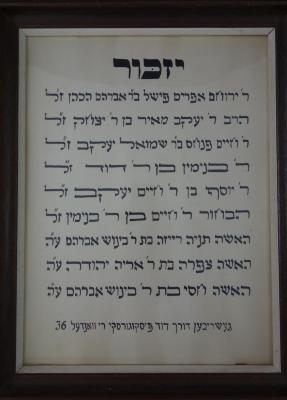 יזכור
ר׳ ירוחם אפרים פישל בר אברהם הכהן ז״ל
הרב ר׳ יעקב מאיר בן ר׳ יצחק ז״ל
ר׳ חיים פנחס בר שמואל יעקב ז״ל
ר׳ בנימין בן ר׳ דוד ז״ל
ר׳ יוסף בן ר׳ חיים יעקב ז״ל
הבחור ר׳ חיים בן ר׳ בנימין ז״ל
האשה חניה רייזה בת ר׳ אברהם ע״ה
האשה צפרה בת ר׳ אריה יהודה ע״ה
האשה חסי בת ר׳ אברהם ע״ה
געשריבען דורך דוד ר׳ וואנדעל 36